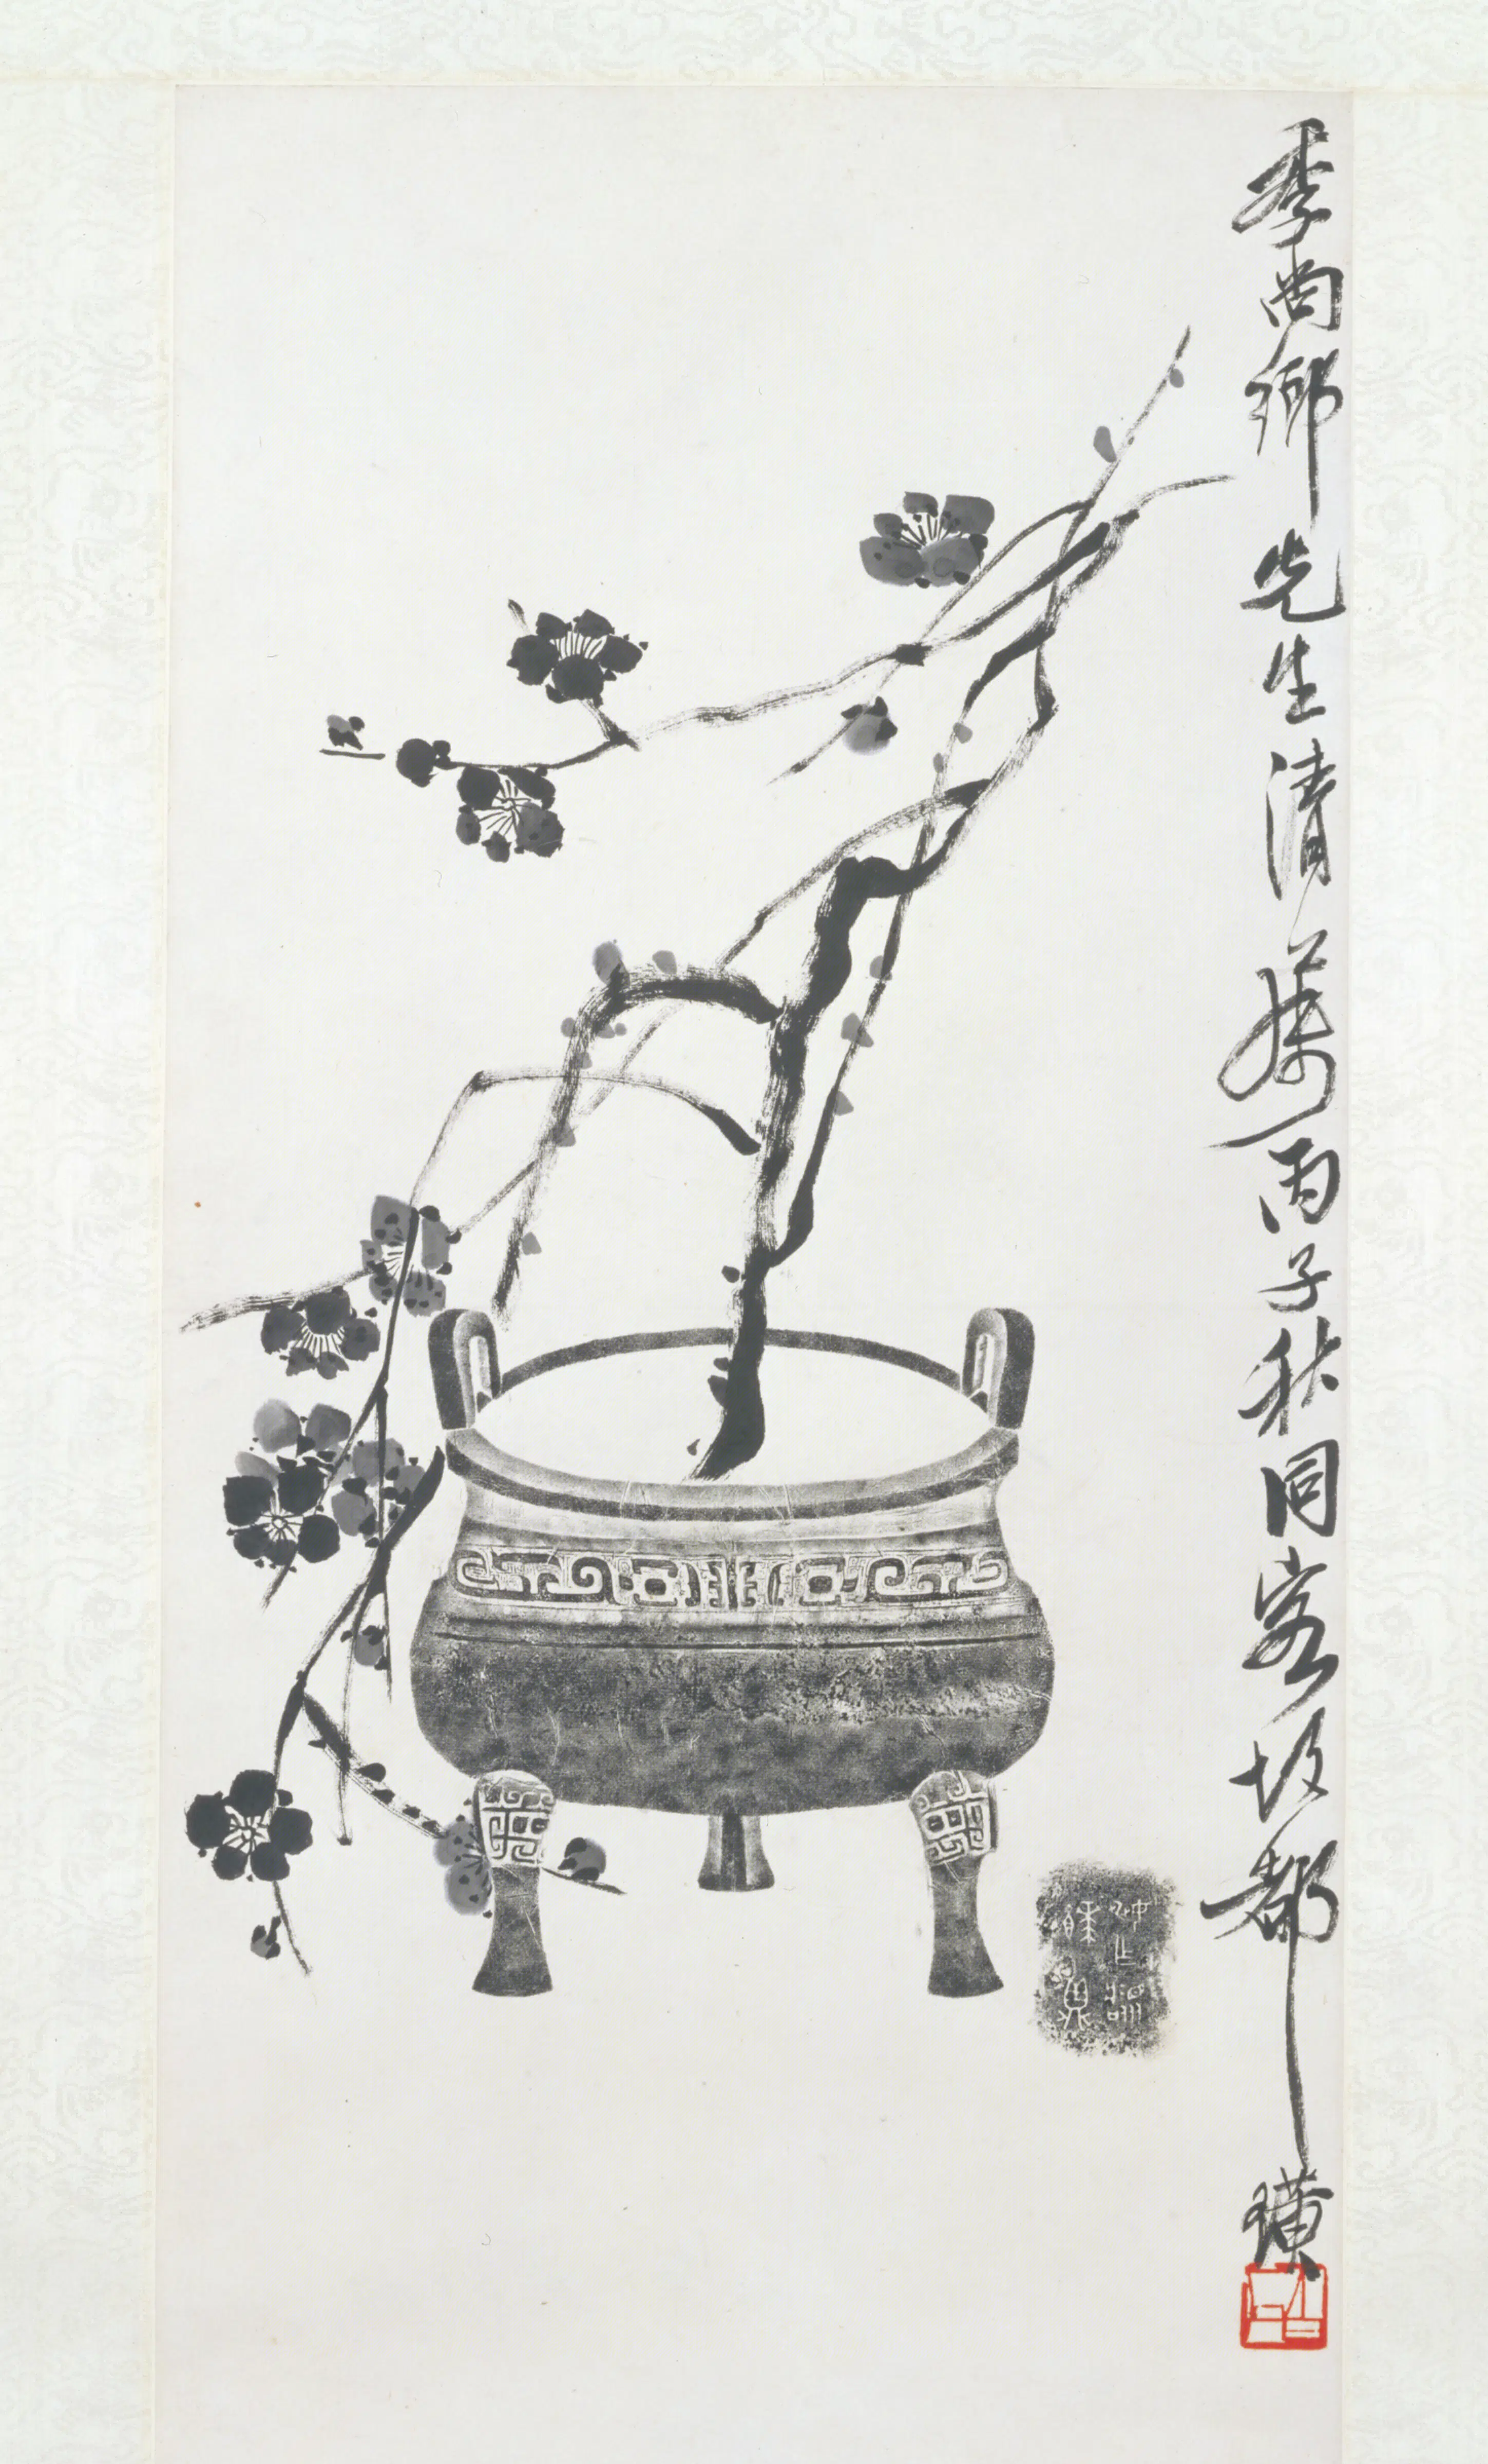 季尚鄉先生清屬丙子秋同客故都璜